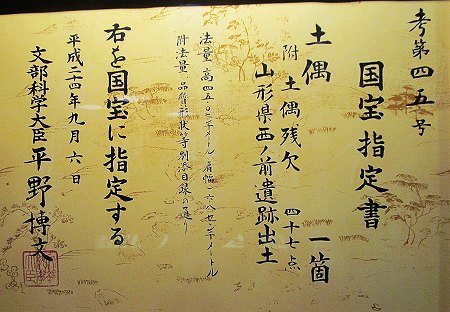 考第四五号
国宝指定書
土偶 一箇
附 土偶残欠 四十七点
山形県西ノ前遺跡出土
法量 高四五・〇センチメートル 肩幅一六・八センチメートル
附法量、品質形状等別添目録の通り
右を国宝に指定する
平成二十四年九月六日
文部科学大臣 平野博文